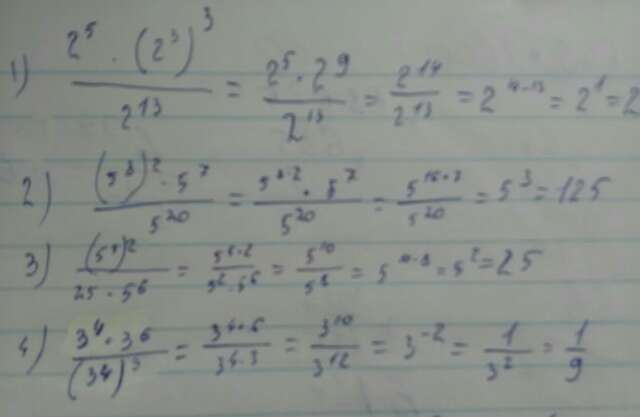 1) (2^5 · (2^3)^3) / 2^13 = (2^5 · 2^9) / 2^13 = 2^14 / 2^13 = 2^(14-13) = 2^1 = 2
2) ((5^8)^2 · 5^7) / 5^20 = (5^(8·2) · 5^7) / 5^20 = 5^(16+7) / 5^20 = 5^3 = 125
3) (5^5)^2 / (25 · 5^6) = 5^(5·2) / (5^2 · 5^6) = 5^10 / 5^8 = 5^(10-8) = 5^2 = 25
4) (3^4 · 3^6) / (3^4)^3 = 3^(4+6) / 3^(4·3) = 3^10 / 3^12 = 3^-2 = 1 / 3^2 = 1 / 9